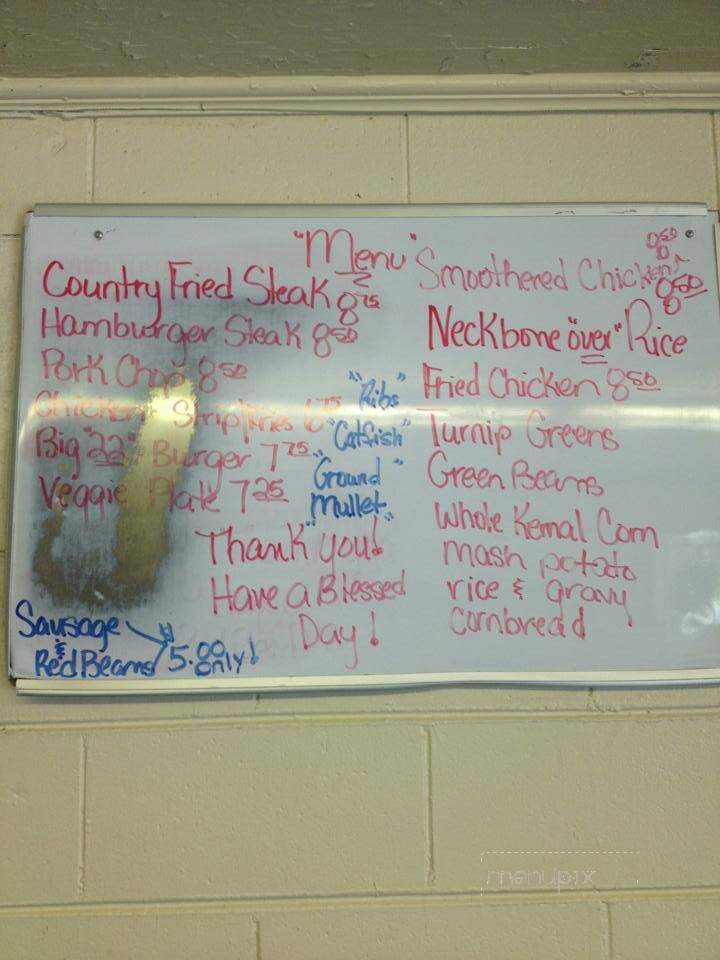 "Menu"
Country Fried Steak 8 75
Hamburger Steak 8 50
Pork Chop 8 50
Chicken Strip/Fries 6 75
Big "22" Burger 7 75
Veggie Plate 7 25
"Ribs"
"Catfish"
"Ground Mullet"
Thank you!
Have a Blessed
Day!
Sausage
& Red Beans $5.00 only!
8 50
Smoothered Chicken 8 50
Neckbone "over" Rice
Fried Chicken 8 50
Turnip Greens
Green Beans
Whole Kernal Corn
mash potato
rice & gravy
cornbread
menupix